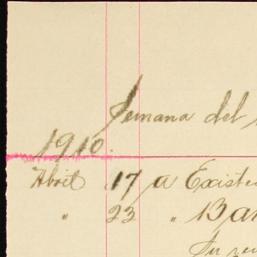 Semana del
1910.
Abril 17 a Existe
" 23 " Ban